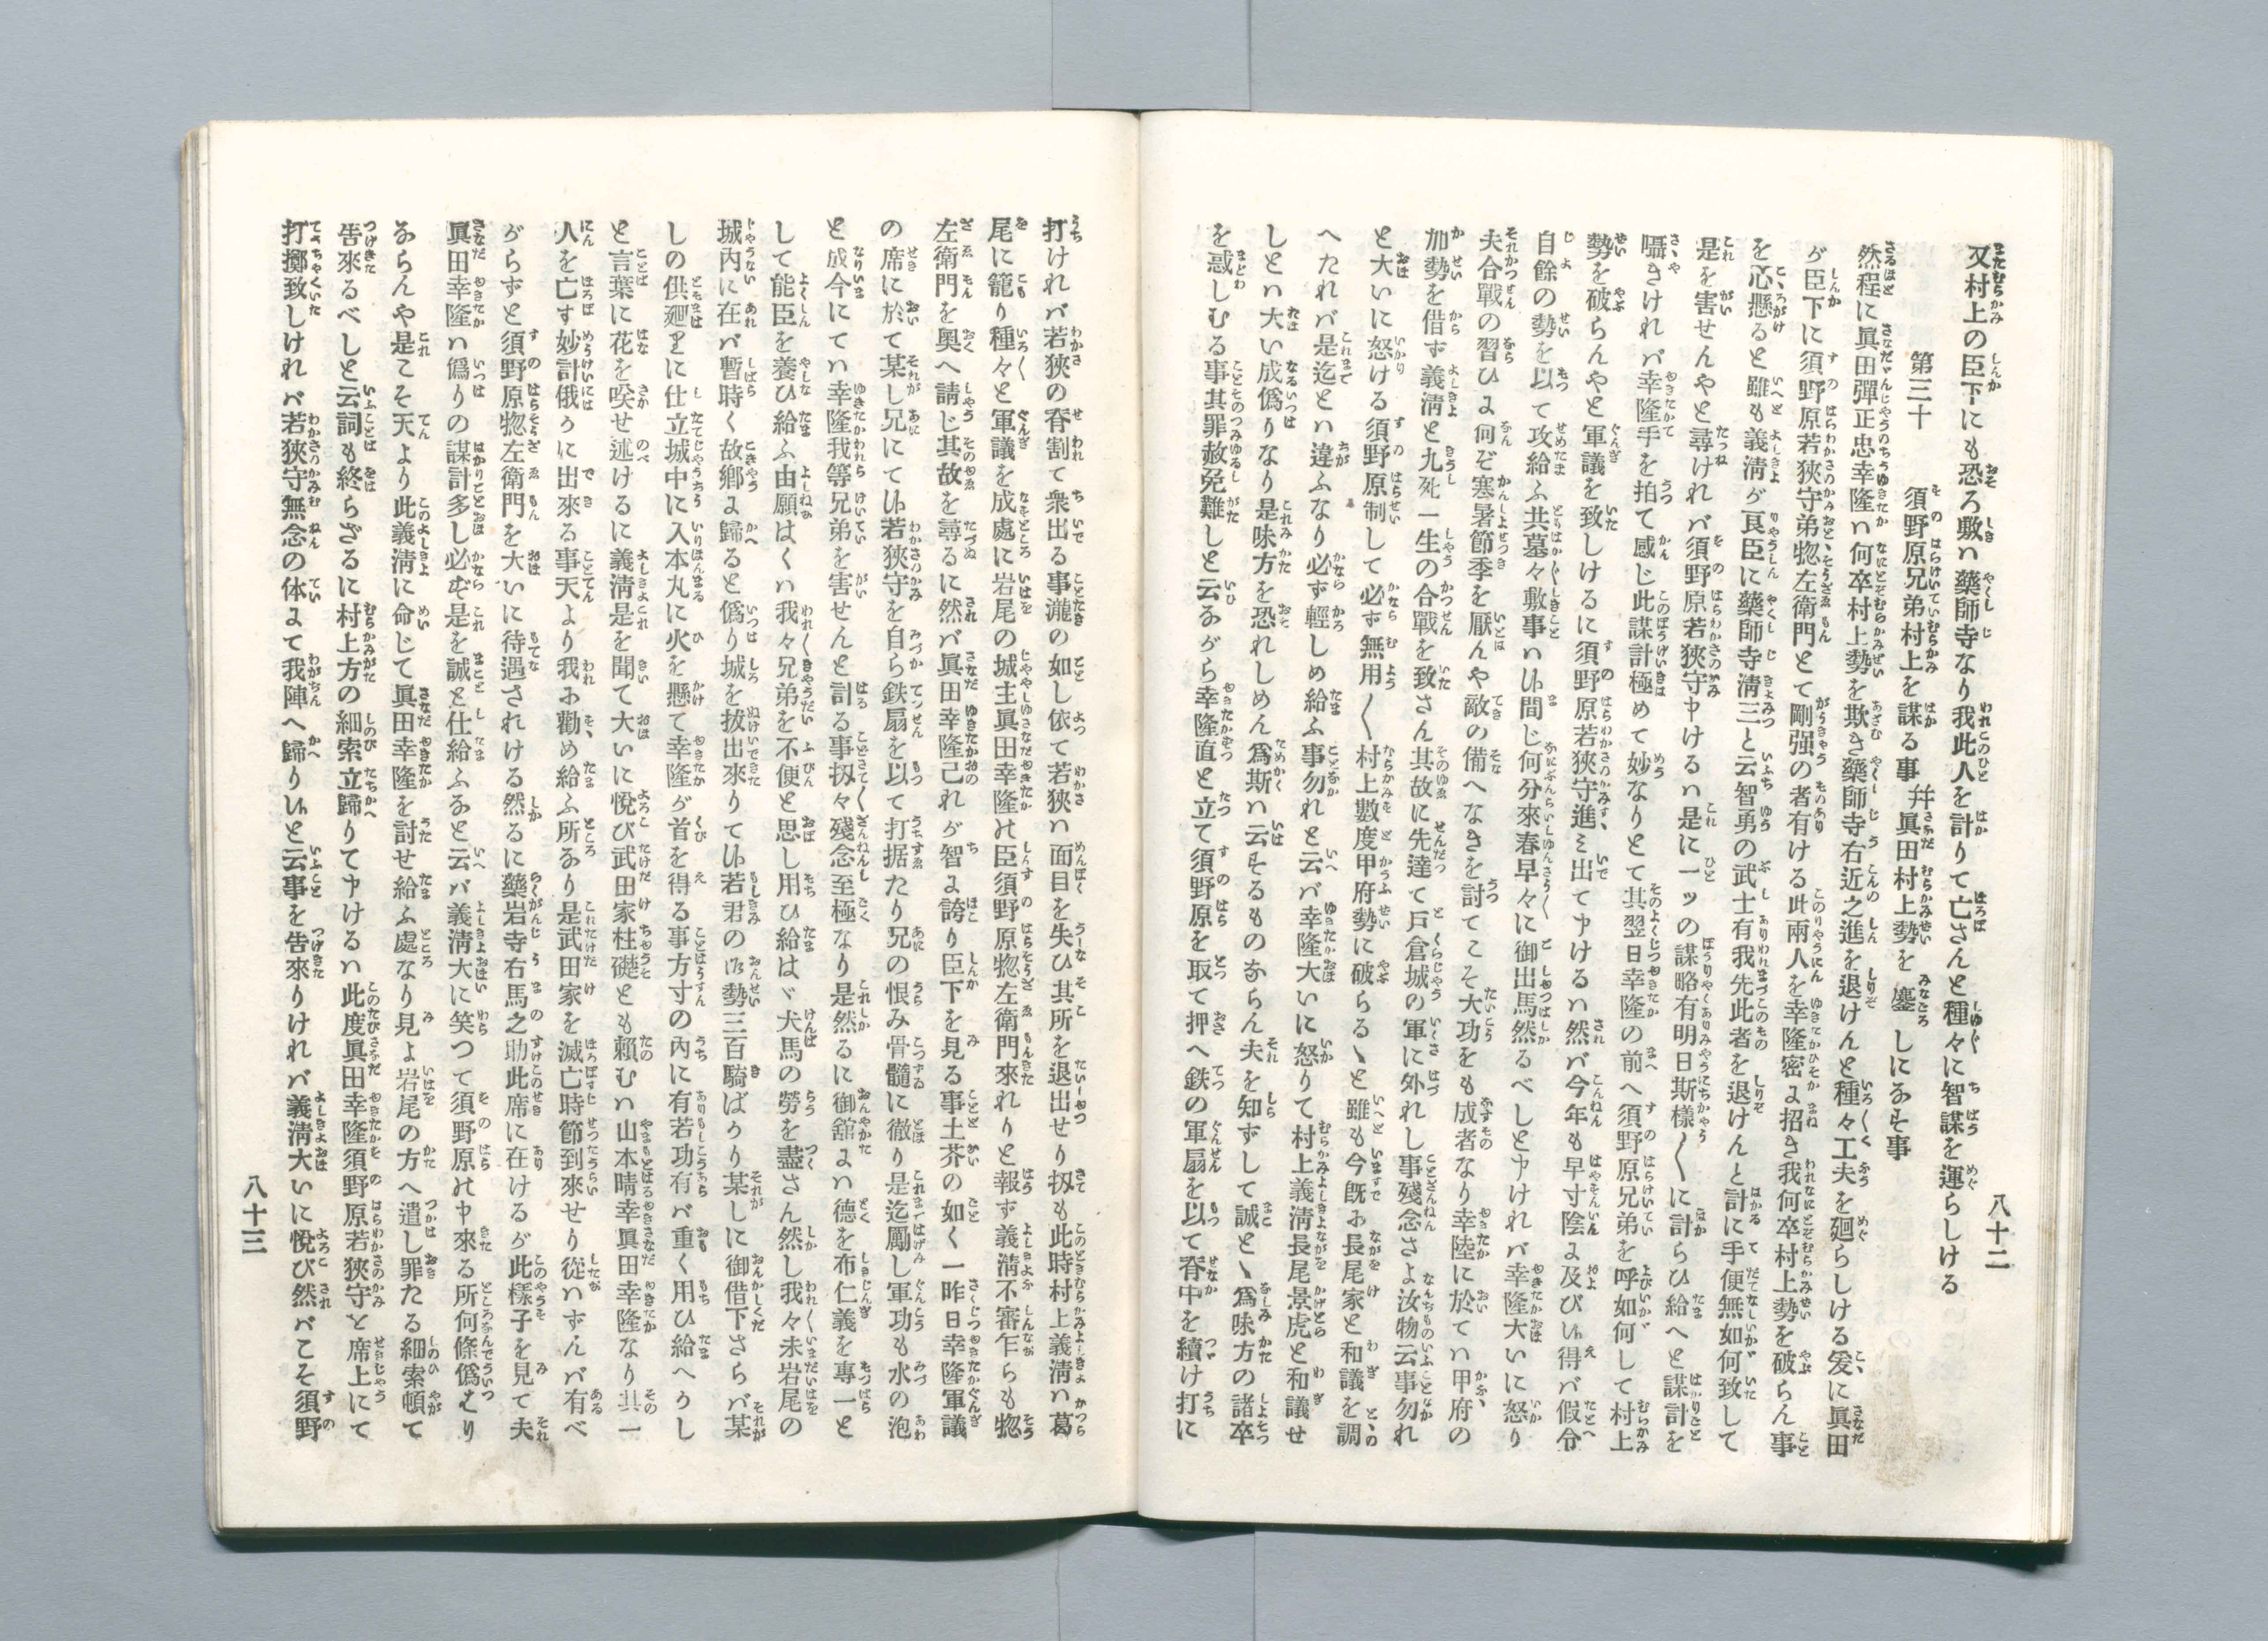 八十二
又村上の臣下にも恐ろ敷ハ藥師寺なり我此人を計りて亡さんと種々に智謀を運らしける
第三十　須野原兄弟村上を謀る事　幷眞田村上勢を鏖しにあそ事
然程に眞田彈正忠幸隆ハ何卒村上勢を欺き藥師寺右近之進を退けんと種々工夫を廻らしける爰に眞田
が臣下に須野原若狹守弟惣左衛門とて剛强の者有ける此兩人を幸隆密よ招き我何卒村上勢を破らん事
を心懸ると雖も義淸が良臣に藥師寺淸三と云智勇の武士有我先此者を退けんと計に手便無如何致して
是を害せんやと尋けれバ須野原若狹守申けるハ是に一ッの謀略有明日斯樣〳〵に計らひ給へと謀計を
囁きけれバ幸隆手を拍て感じ此謀計極めて妙なりとて其翌日幸隆の前へ須野原兄弟を呼如何して村上
勢を破らんやと軍議を致しけるに須野原若狹守進ミ出て申けるハ然バ今年も早寸陰よ及び候得バ假令
自餘の勢を以て攻給ふ共墓々敷事ハ候間じ何分來春早々に御出馬然るべしと申けれバ幸隆大いに怒り
夫合戰の習ひよ何ぞ寒暑節季を厭んや敵の備へなきを討てこそ大功をも成者なり幸陸に於てハ甲府の
加勢を借ず義淸と九死一生の合戰を致さん其故に先達て戸倉城の軍に外れし事殘念さよ汝物云事勿れ
と大いに怒ける須野原制して必ず無用〳〵村上數度甲府勢に破らるゝと雖も今既よ長尾家と和議を調
へたれバ是迄とハ違ふなり必ず輕しめ給ふ事勿れと云バ幸隆大いに怒りて村上義淸長尾景虎と和議せ
しとハ大い成僞りなり是味方を恐れしめん爲斯ハ云せるものあらん夫を知ずして誠とゝ爲味方の諸卒
を惑しむる事其罪赦免難しと云ゐがら幸隆直と立て須野原を取て押へ鉄の軍扇を以て脊中を續け打に
打けれバ若狹の脊割て衆出る事瀧の如し依て若狹ハ面目を失ひ其所を退出せり扨も此時村上義淸ハ葛
尾に籠り種々と軍議を成處に岩尾の城主眞田幸隆の臣須野原惣左衛門來れりと報ず義淸不審乍らも惣
左衛門を奧へ請じ其故を尋るに然バ眞田幸隆己れが智よ誇り臣下を見る事土芥の如く一昨日幸隆軍議
の席に於て某し兄にて候若狹守を自ら鉄扇を以て打据たり兄の恨み骨髓に徹り是迄勵し軍功も水の泡
と成今にてハ幸隆我等兄弟を害せんと計る事扨々殘念至極なり是然るに御舘よハ德を布仁義を專一と
して能臣を養ひ給ふ由願はくハ我々兄弟を不便と思し用ひ給はゞ犬馬の勞を盡さん然し我々未岩尾の
城內に在バ暫時く故鄕よ歸ると僞り城を拔出來りて候若君の御勢三百騎ばかり某しに御借下さらバ某
しの供廻りに仕立城中に入本丸に火を懸て幸隆が首を得る事方寸の內に有若功有バ重く用ひ給へかし
と言葉に花を咲せ述けるに義淸是を聞て大いに悅び武田家柱礎とも賴むハ山本晴幸眞田幸隆なり其一
人を亡す妙計俄かに出來る事天より我よ勸め給ふ所あり是武田家を滅亡時節到來せり從ハずんバ有べ
がらずと須野原惣左衛門を大いに待遇されける然るに藥岩寺右馬之助此席に在けるが此樣子を見て夫
眞田幸隆ハ僞りの謀計多し必ず是を誠と仕給ふゐと云バ義淸大に笑つて須野原の申來る所何條僞より
あらんや是こそ天より此義淸に命じて眞田幸隆を討せ給ふ處なり見よ岩尾の方へ遣し罪たる細索頓て
告來るべしと云詞も終らざるに村上方の細索立歸りて申けるハ此度眞田幸隆須野原若狹守と席上にて
打擲致しけれバ若狹守無念の体よて我陣へ歸り候と云事を告來りけれバ義淸大いに悅び然バこそ須野
八十三